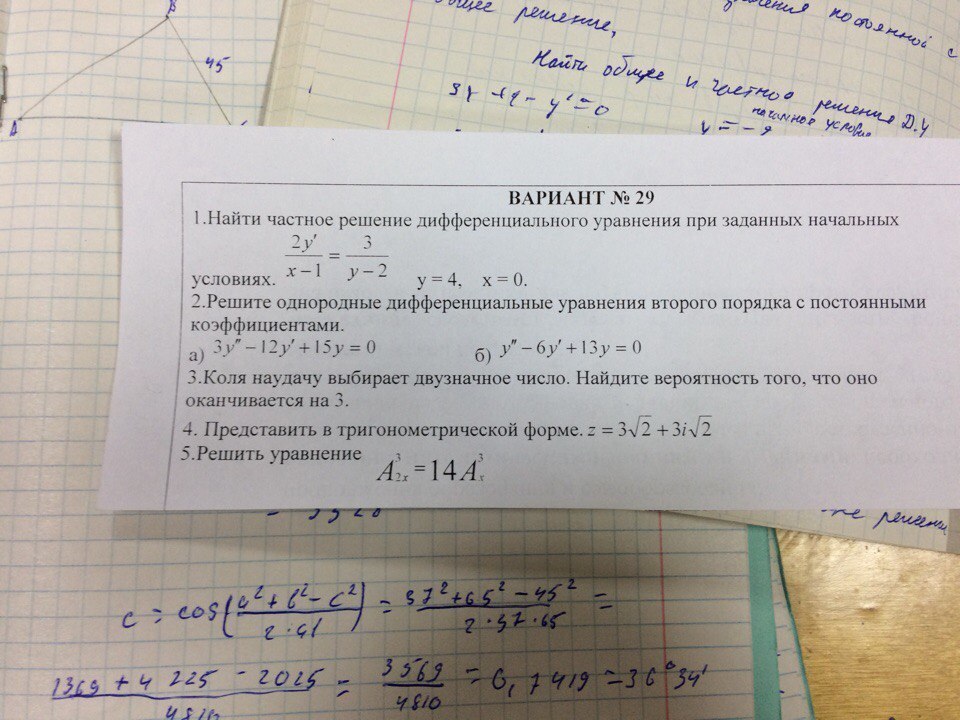 B
45
A
общее решение,
постоянной с
Найти общее и частное решения Д.У
начальное условие
ВАРИАНТ № 29
1.Найти частное решение дифференциального уравнения при заданных начальных
условиях. 2y′/(x−1) = 3/(y−2) y = 4, x = 0.
2.Решите однородные дифференциальные уравнения второго порядка с постоянными
коэффициентами.
а) 3y″−12y′+15y = 0 б) y″−6y′+13y = 0
3.Коля наудачу выбирает двузначное число. Найдите вероятность того, что оно
оканчивается на 3.
4. Представить в тригонометрической форме. z = 3√2 + 3i√2
5.Решить уравнение A³₂ₓ = 14 A³ₓ
решени
= 37² + 65² − 45² / 2·37·65 =
1369 + 4225 − 2025 / 4810 = 3569 / 4810 = 0,7419 = 36°34′